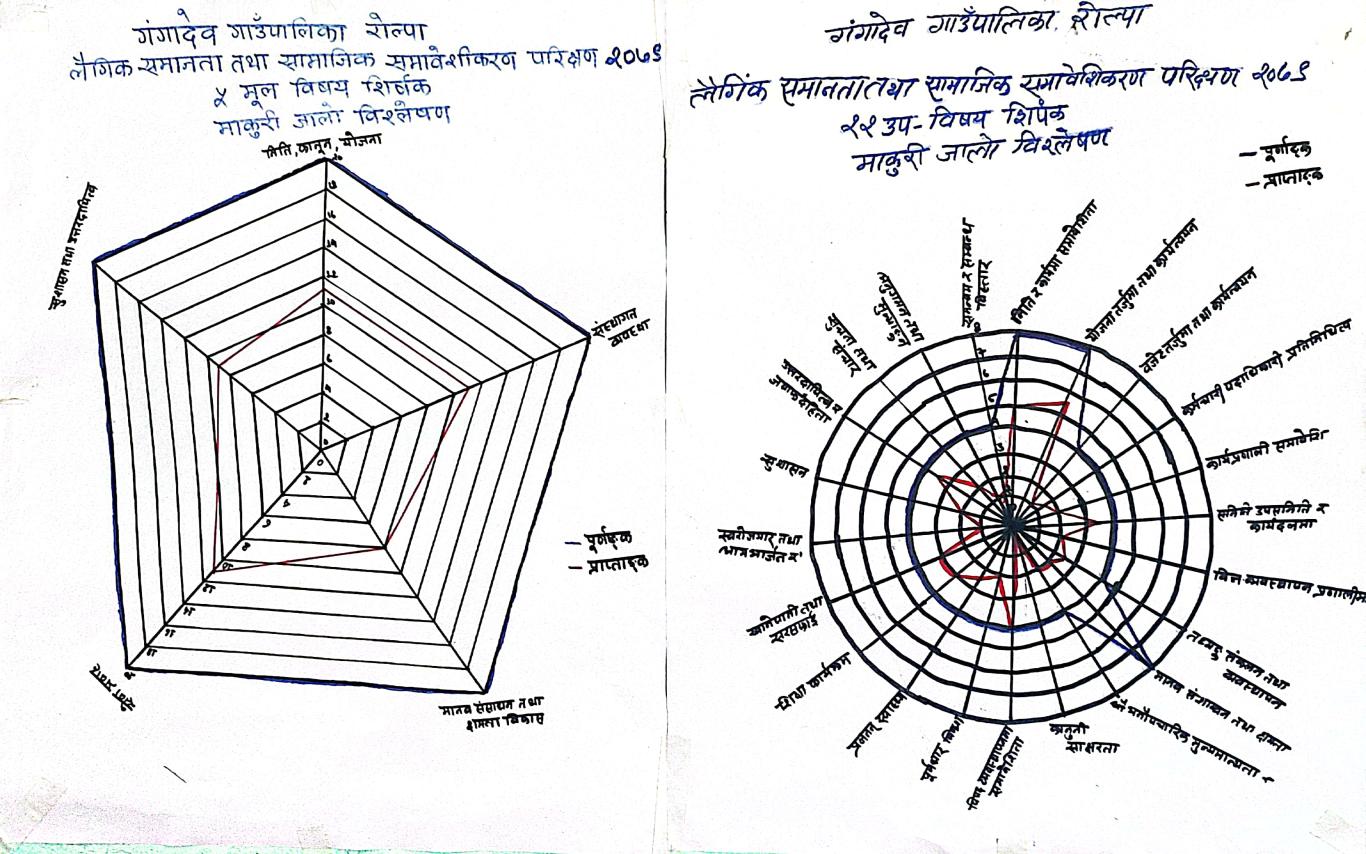 गंगादेव गाउँपालिका रोल्पा
लैगिक समानता तथा सामाजिक समावेशीकरण परिक्षण २०७९
५ मूल विषय शिर्षक
माकुरी जालो विश्लेषण
निति, कानून, योजना
सुशासन तथा उत्तरदायित्व
संस्थागत
व्यवस्था
मानव संसाधन तथा
क्षमता विकास
सेवा प्रवाह
— पूर्णाङ्क
— प्राप्ताङ्क
गंगादेव गाउँपालिका, रोल्पा
लैगिंक समानता तथा सामाजिक समावेशिकरण परिक्षण २०७९
२२ उप-विषय शिर्षक
माकुरी जालो विश्लेषण
— पूर्णाङ्क
— प्राप्ताङ्क
निति र कार्यमा समावेशिता
योजना तर्जुमा तथा कार्यन्वयन
बजेट तर्जुमा तथा कार्यन्वयन
कर्मचारी पदाधिकारी प्रतिनिधित्व
कार्यप्रणाली समावेशि
समिति उपसमिति र
कार्यदलमा
वित्त व्यवस्थापन प्रणालीमा
तथ्याङ्क संकलन तथा
व्यवस्थापन
मानव संसाधन तथा क्षमता
कानुनी
साक्षरता
समावेशिता
पूर्वाधार
प्रजनन स्वास्थ्य
शिक्षा कार्यक्रम
खानेपानी तथा
सरसफाई
स्वरोजगार तथा
सुशासन
उत्तरदायित्व र
जवाफदेहिता
सुचना तथा
संचार
अनुगमन तथा
मुल्याङ्कन
समन्वय र सम्बन्ध
विस्तार